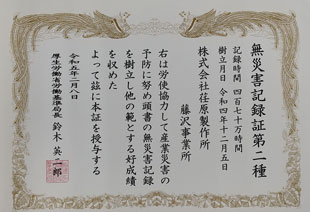 無災害記録証第二種
記録時間 四百七十万時間
樹立月日 令和四年十二月五日
株式会社荏原製作所
藤沢事業所
右は労使協力して産業災害の
予防に努め頭書の無災害記録
を樹立し他の範とする好成績
を収めた
よって茲に本証を授与する
令和五年二月八日
厚生労働省労働基準局長 鈴木英二郎